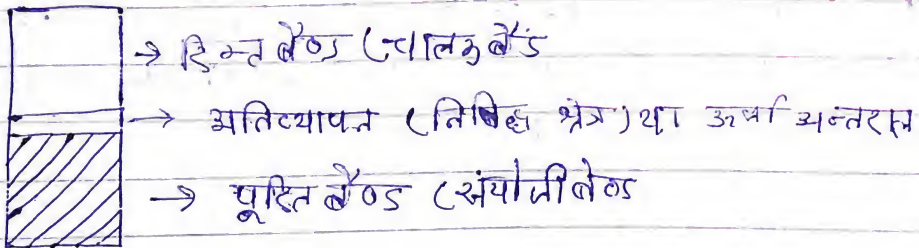 → रिक्त बैण्ड (चालक बैंड
→ अतिव्यापन (निषिद्ध क्षेत्र) या ऊर्जा अन्तराल
→ पूरित बैण्ड (संयोजी बेण्ड